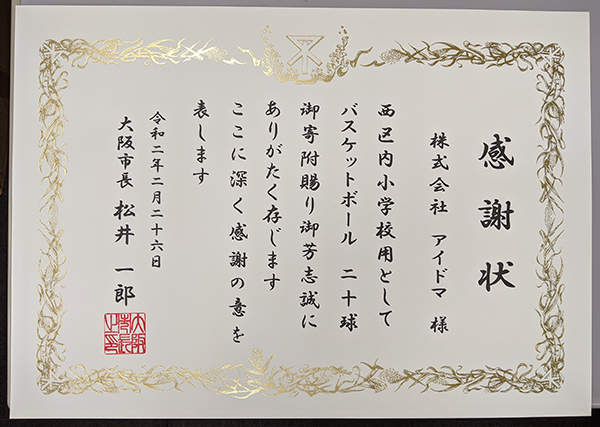 感謝状
株式会社 アイドマ 様
西区内小学校用として
バスケットボール 二十球
御寄附賜り御芳志誠に
ありがたく存じます
ここに深く感謝の意を
表します
令和二年二月二十六日
大阪市長 松井 一郎
大阪市長之印